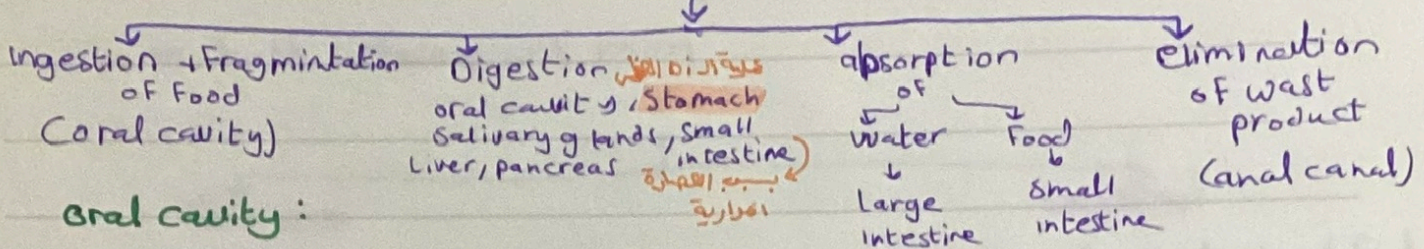 Ingestion + Fragmintation
of Food
(oral cavity)
Digestion
oral cavity, stomach
salivary glands, small
intestine
Liver, pancreas
بسبب العصارة
المرارية
absorption
of
Water
Food
Large
intestine
small
intestine
elimination
of wast
product
(anal canal)
oral cavity :